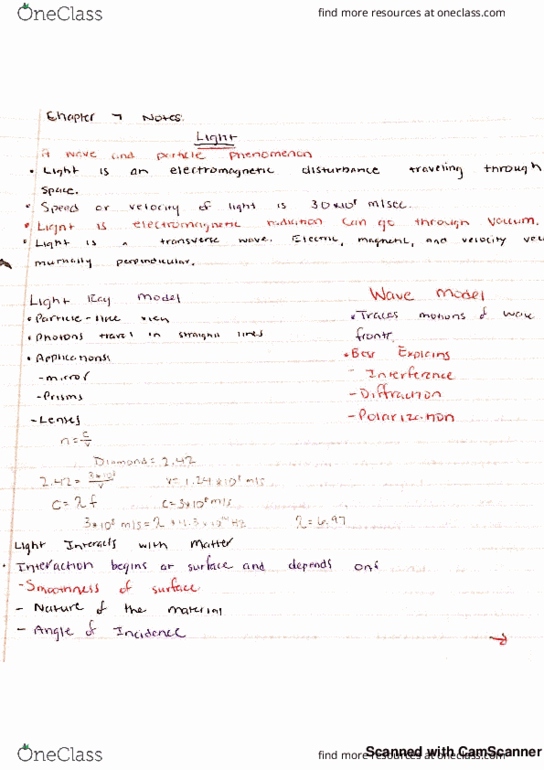 OneClass
find more resources at oneclass.com
Chapter 7 Notes:
Light
A wave and particle phenomenon
• Light is an electromagnetic disturbance traveling through
space.
• Speed or velocity of light is 3.0×10⁸ m/sec.
• Light is electromagnetic radiation can go through vacuum.
• Light is a transverse wave. Electric, magnent, and velocity vec
mutually perpindicular.
Light Ray Model
• Particle-like view
• Photons travel in straight lines
• Applications:
-mirror
-Prisms
-Lenses
n = c/v
Diamond = 2.42
2.42 = 3×10⁸/v
v = 1.24×10⁸ m/s
C = λf
C = 3×10⁸ m/s
3×10⁸ m/s = λ
λ = 6.97
Wave Model
• Traces motions of wave
fronts.
• Best Explains
- Interference
- Diffraction
- Polarization
Light Interacts with Matter
• Interaction begins at surface and depends on:
- Smoothness of surface
- Nature of the material
- Angle of Incidence
Scanned with CamScanner
OneClass
find more resources at oneclass.com